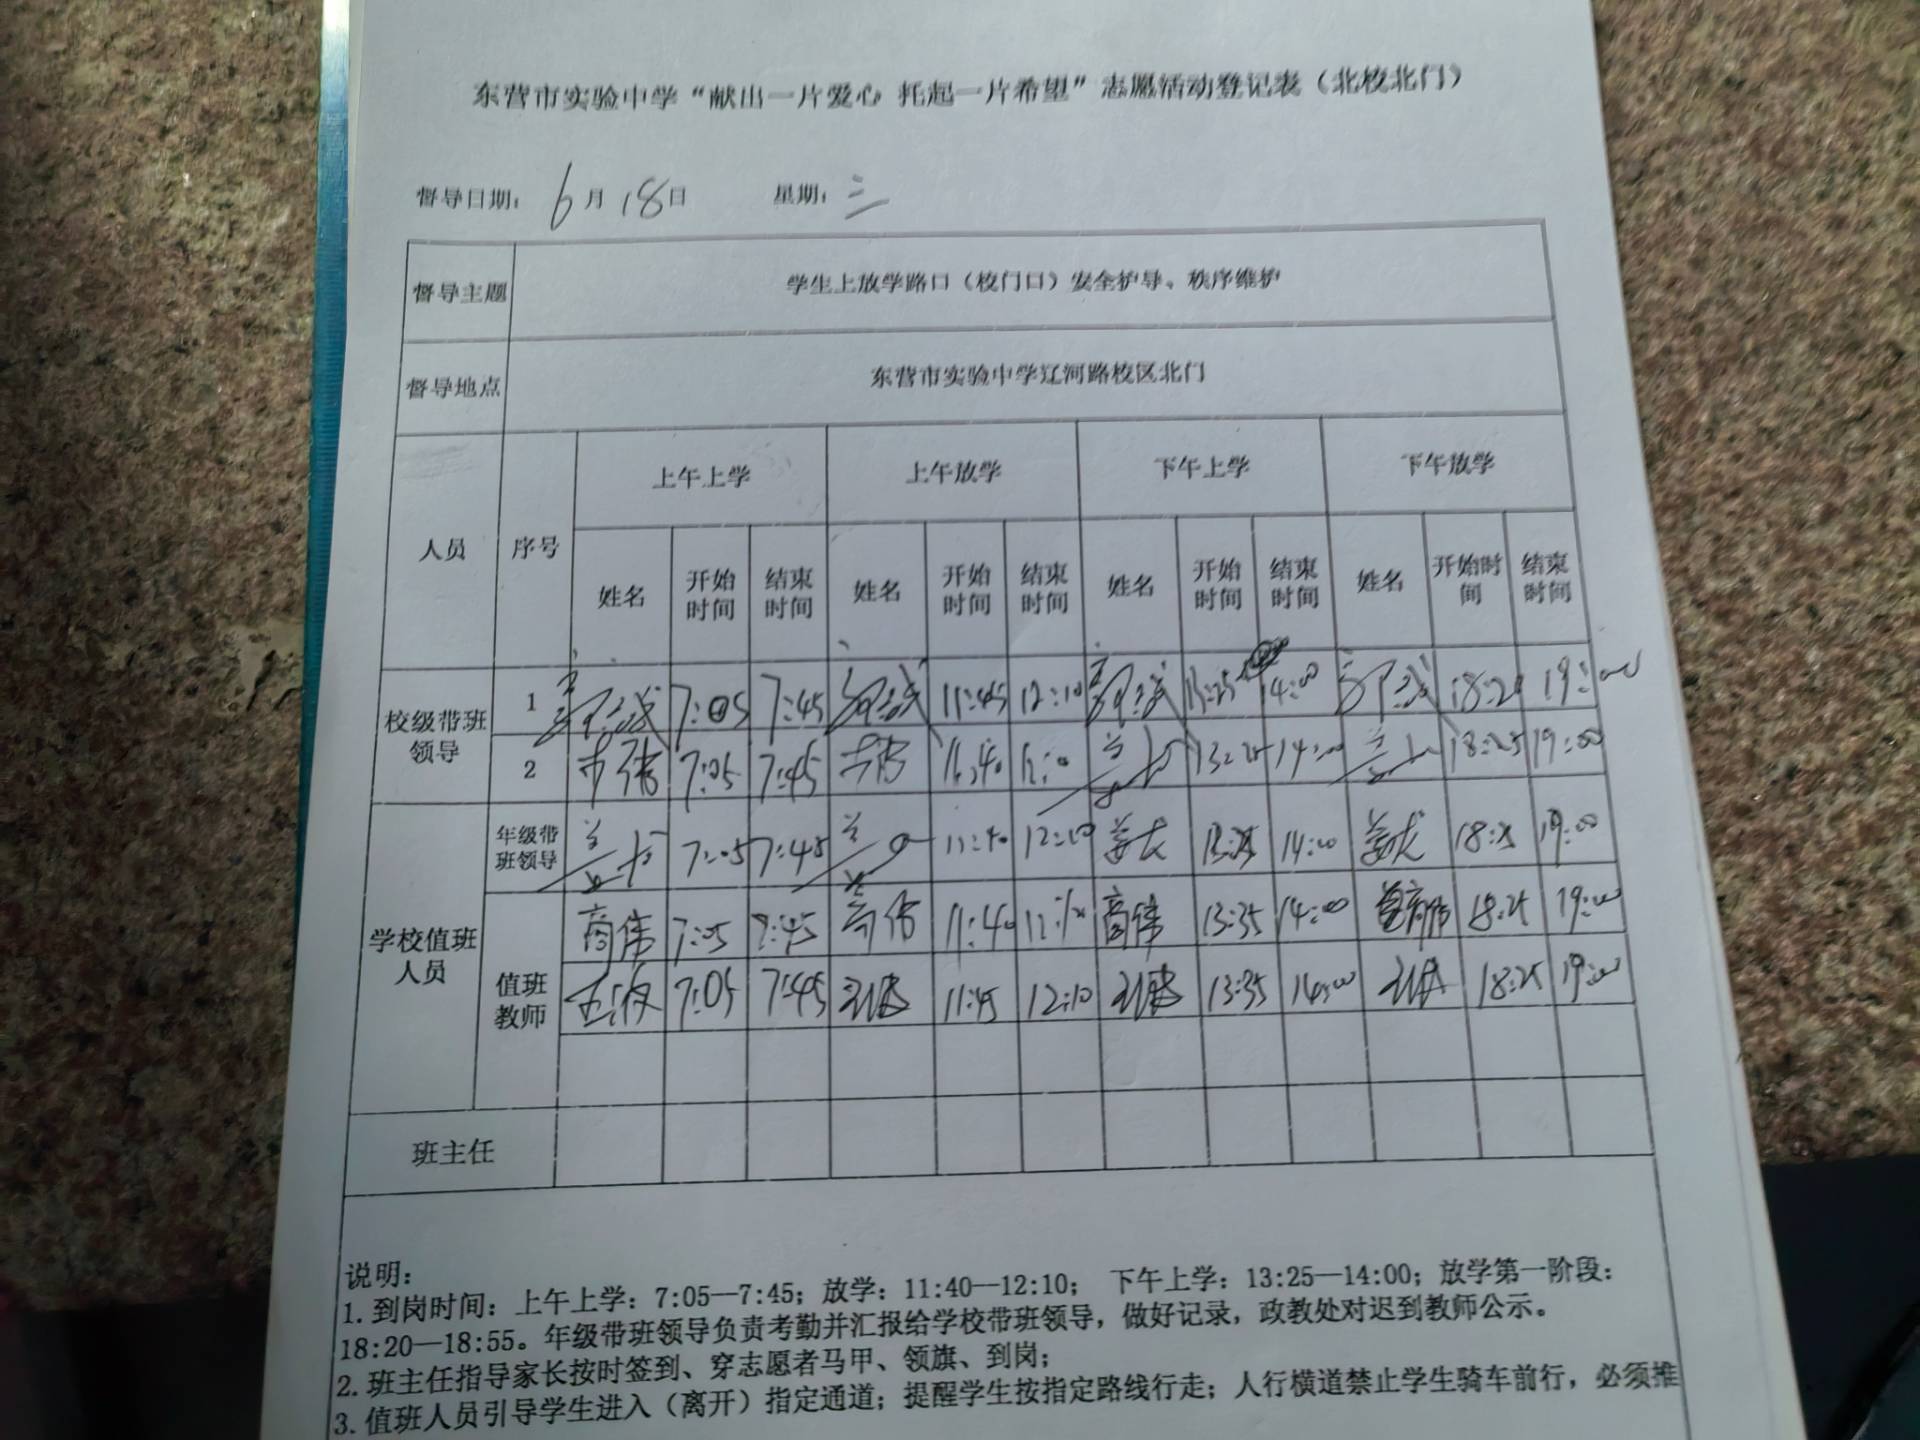 东营市实验中学“献出一片爱心 托起一片希望”志愿活动登记表（北校北门）
督导日期：6月18日 星期：三
督导主题 学生上放学路口（校门口）安全护导、秩序维护
督导地点 东营市实验中学辽河路校区北门
人员 序号 上午上学 上午放学 下午上学 下午放学
姓名 开始时间 结束时间 姓名 开始时间 结束时间 姓名 开始时间 结束时间 姓名 开始时间 结束时间
校级带班领导
1 7:05 7:45 11:45 12:10 13:25 14:00 18:20 19:00
2 7:05 7:45 11:40 13:25 14:00 18:25 19:00
学校值班人员
年级带班领导 7:05 7:45 11:40 12:10 姜龙 13:25 14:00 姜龙 18:25 19:00
值班教师
商伟 7:05 7:45 商伟 11:40 12:10 商伟 13:35 14:00 商伟 18:25 19:00
7:05 7:45 11:45 12:10 13:35 14:00 18:25 19:00
班主任
说明：
1. 到岗时间：上午上学：7:05—7:45；放学：11:40—12:10； 下午上学：13:25—14:00；放学第一阶段：
18:20—18:55。年级带班领导负责考勤并汇报给学校带班领导，做好记录，政教处对迟到教师公示。
2. 班主任指导家长按时签到、穿志愿者马甲、领旗、到岗；
3. 值班人员引导学生进入（离开）指定通道；提醒学生按指定路线行走；人行横道禁止学生骑车前行，必须推